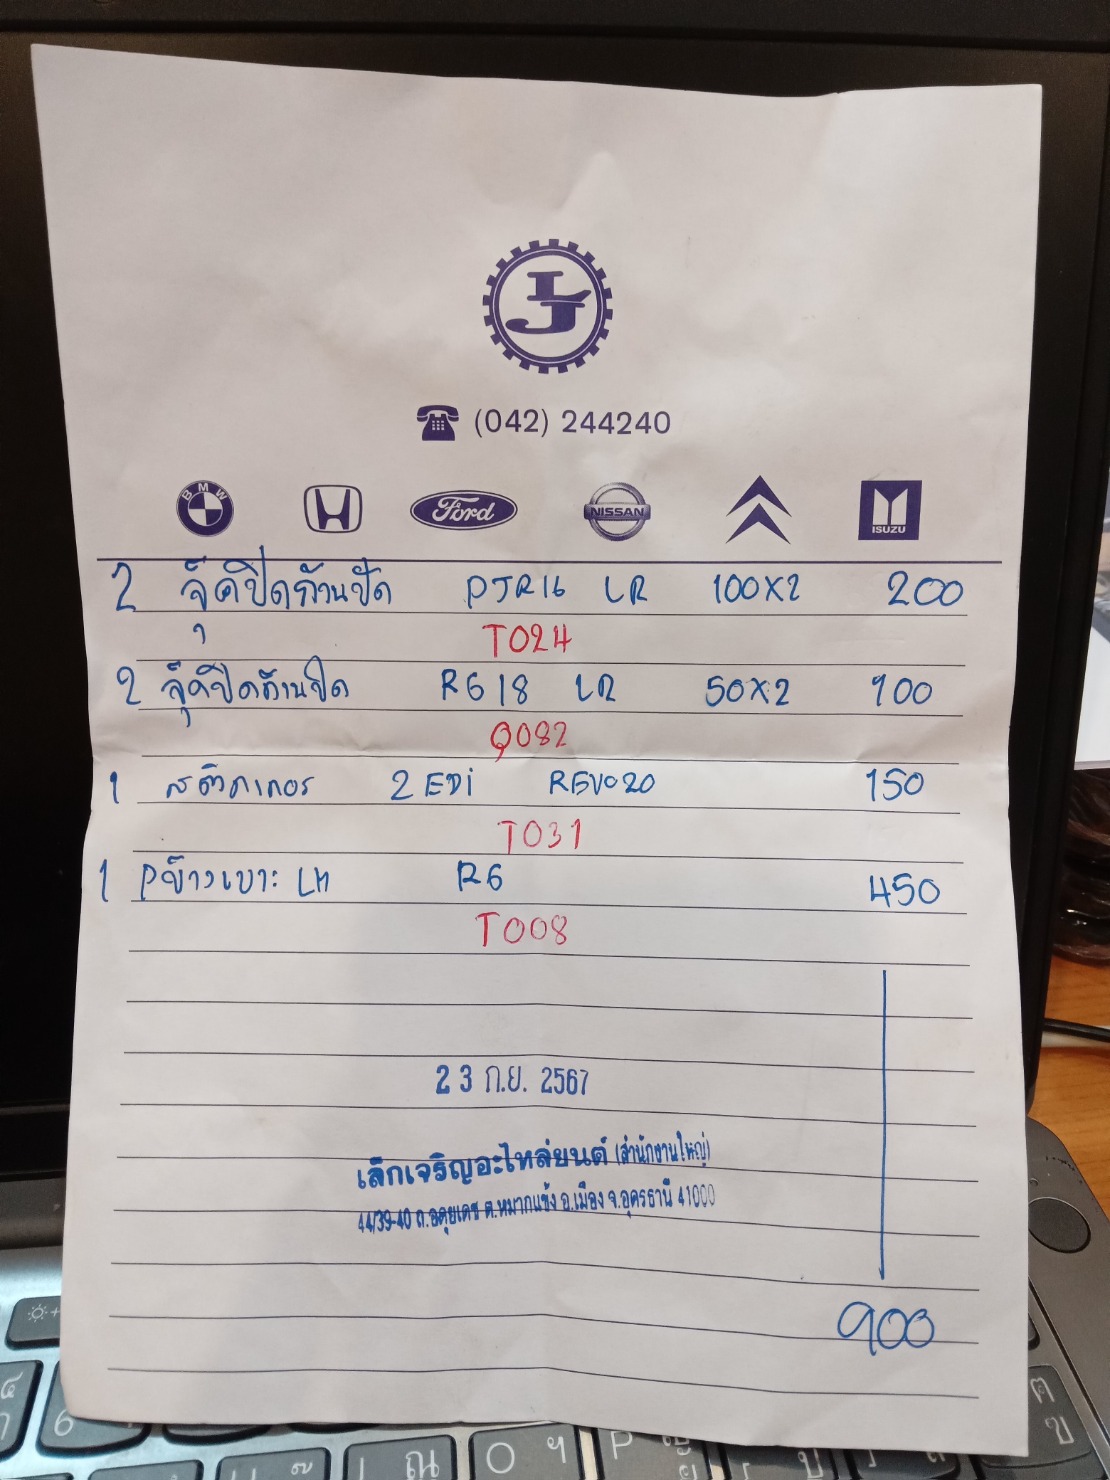 LJ
(042) 244240
BMW Ford NISSAN ISUZU
2 จุ๊คปิดก้านปัด PJR16 LR 100X2 200
T024
2 จุ๊คปิดก้านปัด RG18 LR 50X2 100
Q082
1 สติกเกอร 2EDi REVO20 150
T031
1 Pข้างเบาะ LH R6 450
T008
23 ก.ย. 2567
เล็กเจริญอะไหล่ยนต์ (สำนักงานใหญ่)
44/39-40 ถ.อดุยเดช ต.หมากแข้ง อ.เมือง จ.อุดรธานี 41000
900